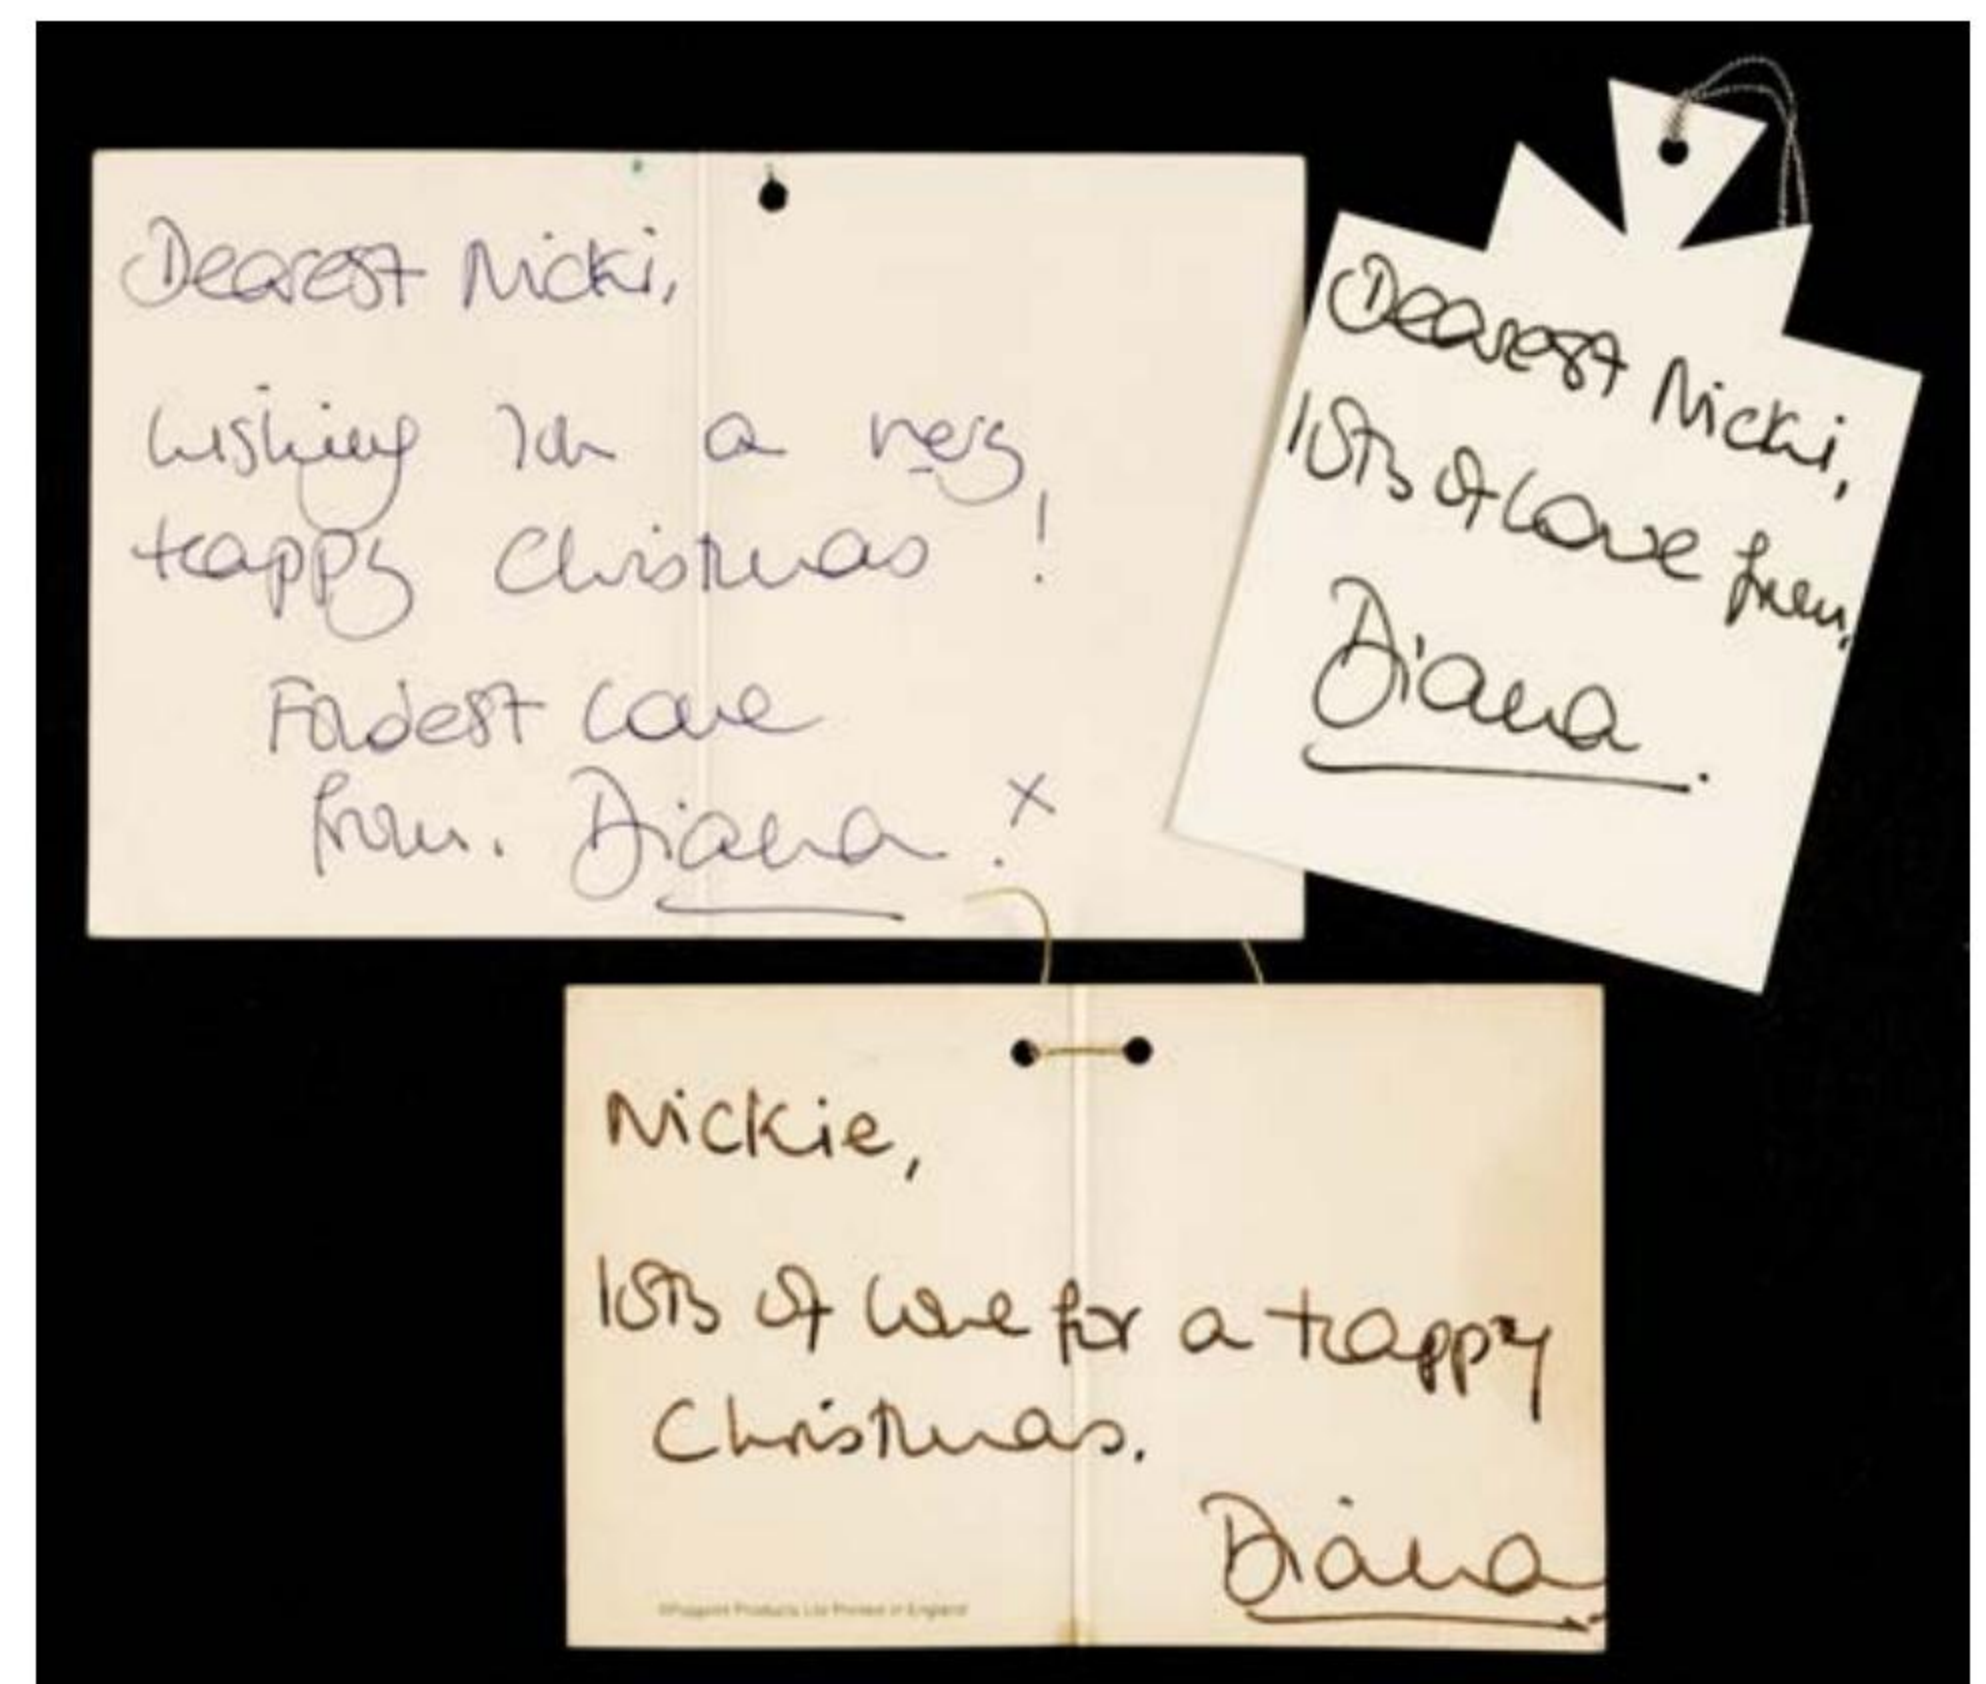 Dearest Nicki,
wishing you a very
happy Christmas!
Fondest love
from. Diana. x
Dearest Nicki,
lots of love from,
Diana.
Nickie,
lots of love for a happy
Christmas.
Diana.
Products Ltd Printed in England